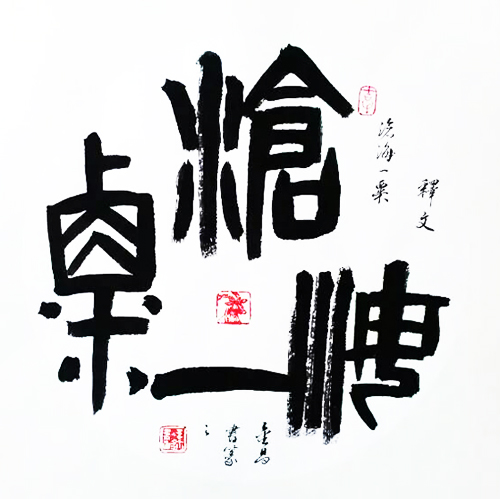 滄
海
一
粟
釋文
滄海一粟